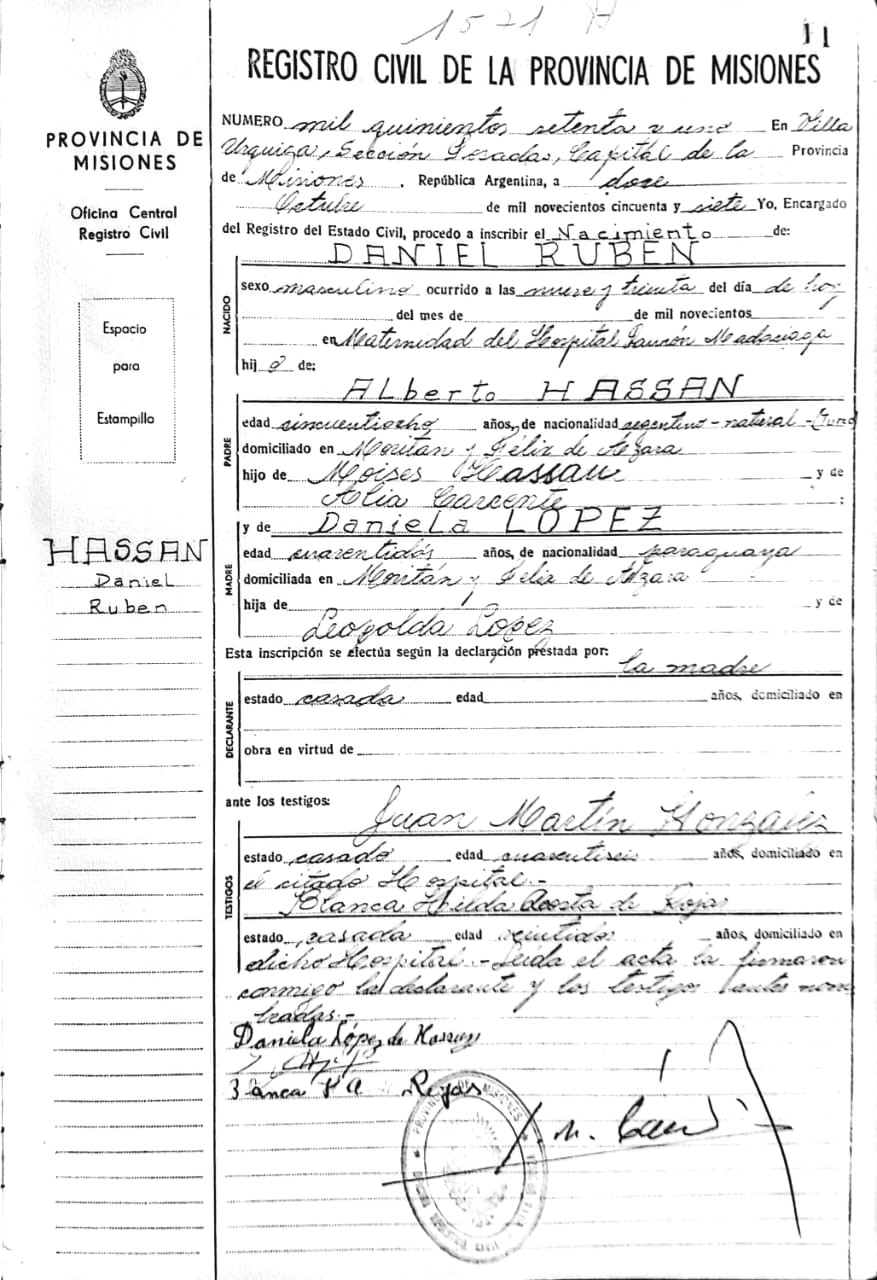 1571 H
11
REGISTRO CIVIL DE LA PROVINCIA DE MISIONES
PROVINCIA DE
MISIONES
Oficina Central
Registro Civil
Espacio
para
Estampilla
HASSAN
Daniel
Ruben
NUMERO mil quinientos setenta y uno En Villa
Urquiza, Sección Posadas, Capital de la Provincia
de Misiones, República Argentina, a doce
Octubre de mil novecientos cincuenta y siete Yo, Encargado
del Registro del Estado Civil, procedo a inscribir el Nacimiento de:
DANIEL RUBEN
NACIDO
sexo masculino ocurrido a las nueve y treinta del día de hoy
del mes de de mil novecientos
en Maternidad del Hospital Ramón Madariaga
hijo de:
Alberto HASSAN
PADRE
edad cincuentiocho años, de nacionalidad argentino - natural -
domiciliado en y Félix de Azara
hijo de Moises Hassan y de
Alia :
y de Daniela LOPEZ
MADRE
edad cuarentidós años, de nacionalidad paraguaya
domiciliada en y Félix de Azara
hija de y de
Leopolda Lopez
Esta inscripción se efectúa según la declaración prestada por: la madre
DECLARANTE
estado casada edad años, domiciliado en
obra en virtud de
ante los testigos: Juan Martín González
TESTIGOS
estado casado edad cuarentiseis años, domiciliado en
el citado Hospital.-
Blanca Hilda Acosta de Rojas
estado casada edad veintidos años, domiciliado en
dicho Hospital.- Leida el acta la firmaron
conmigo la declarante y los testigos antes nom
brados.-
Daniela López de Hassan
Rojas
PROVINCIA DE MISIONES